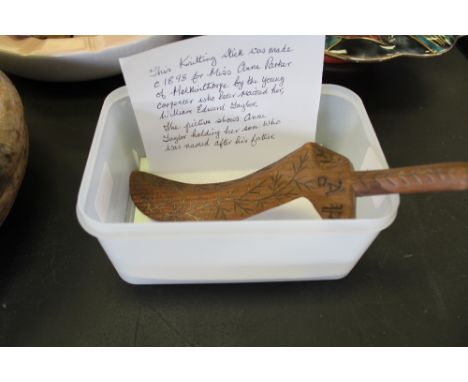 This Knitting Stick was made
c 1898 for Miss Anne Parker
of Melkinthorpe by the young
carpenter who later married her,
William Edward Taylor
The picture shows Anne
Taylor holding her son who
was named after his father